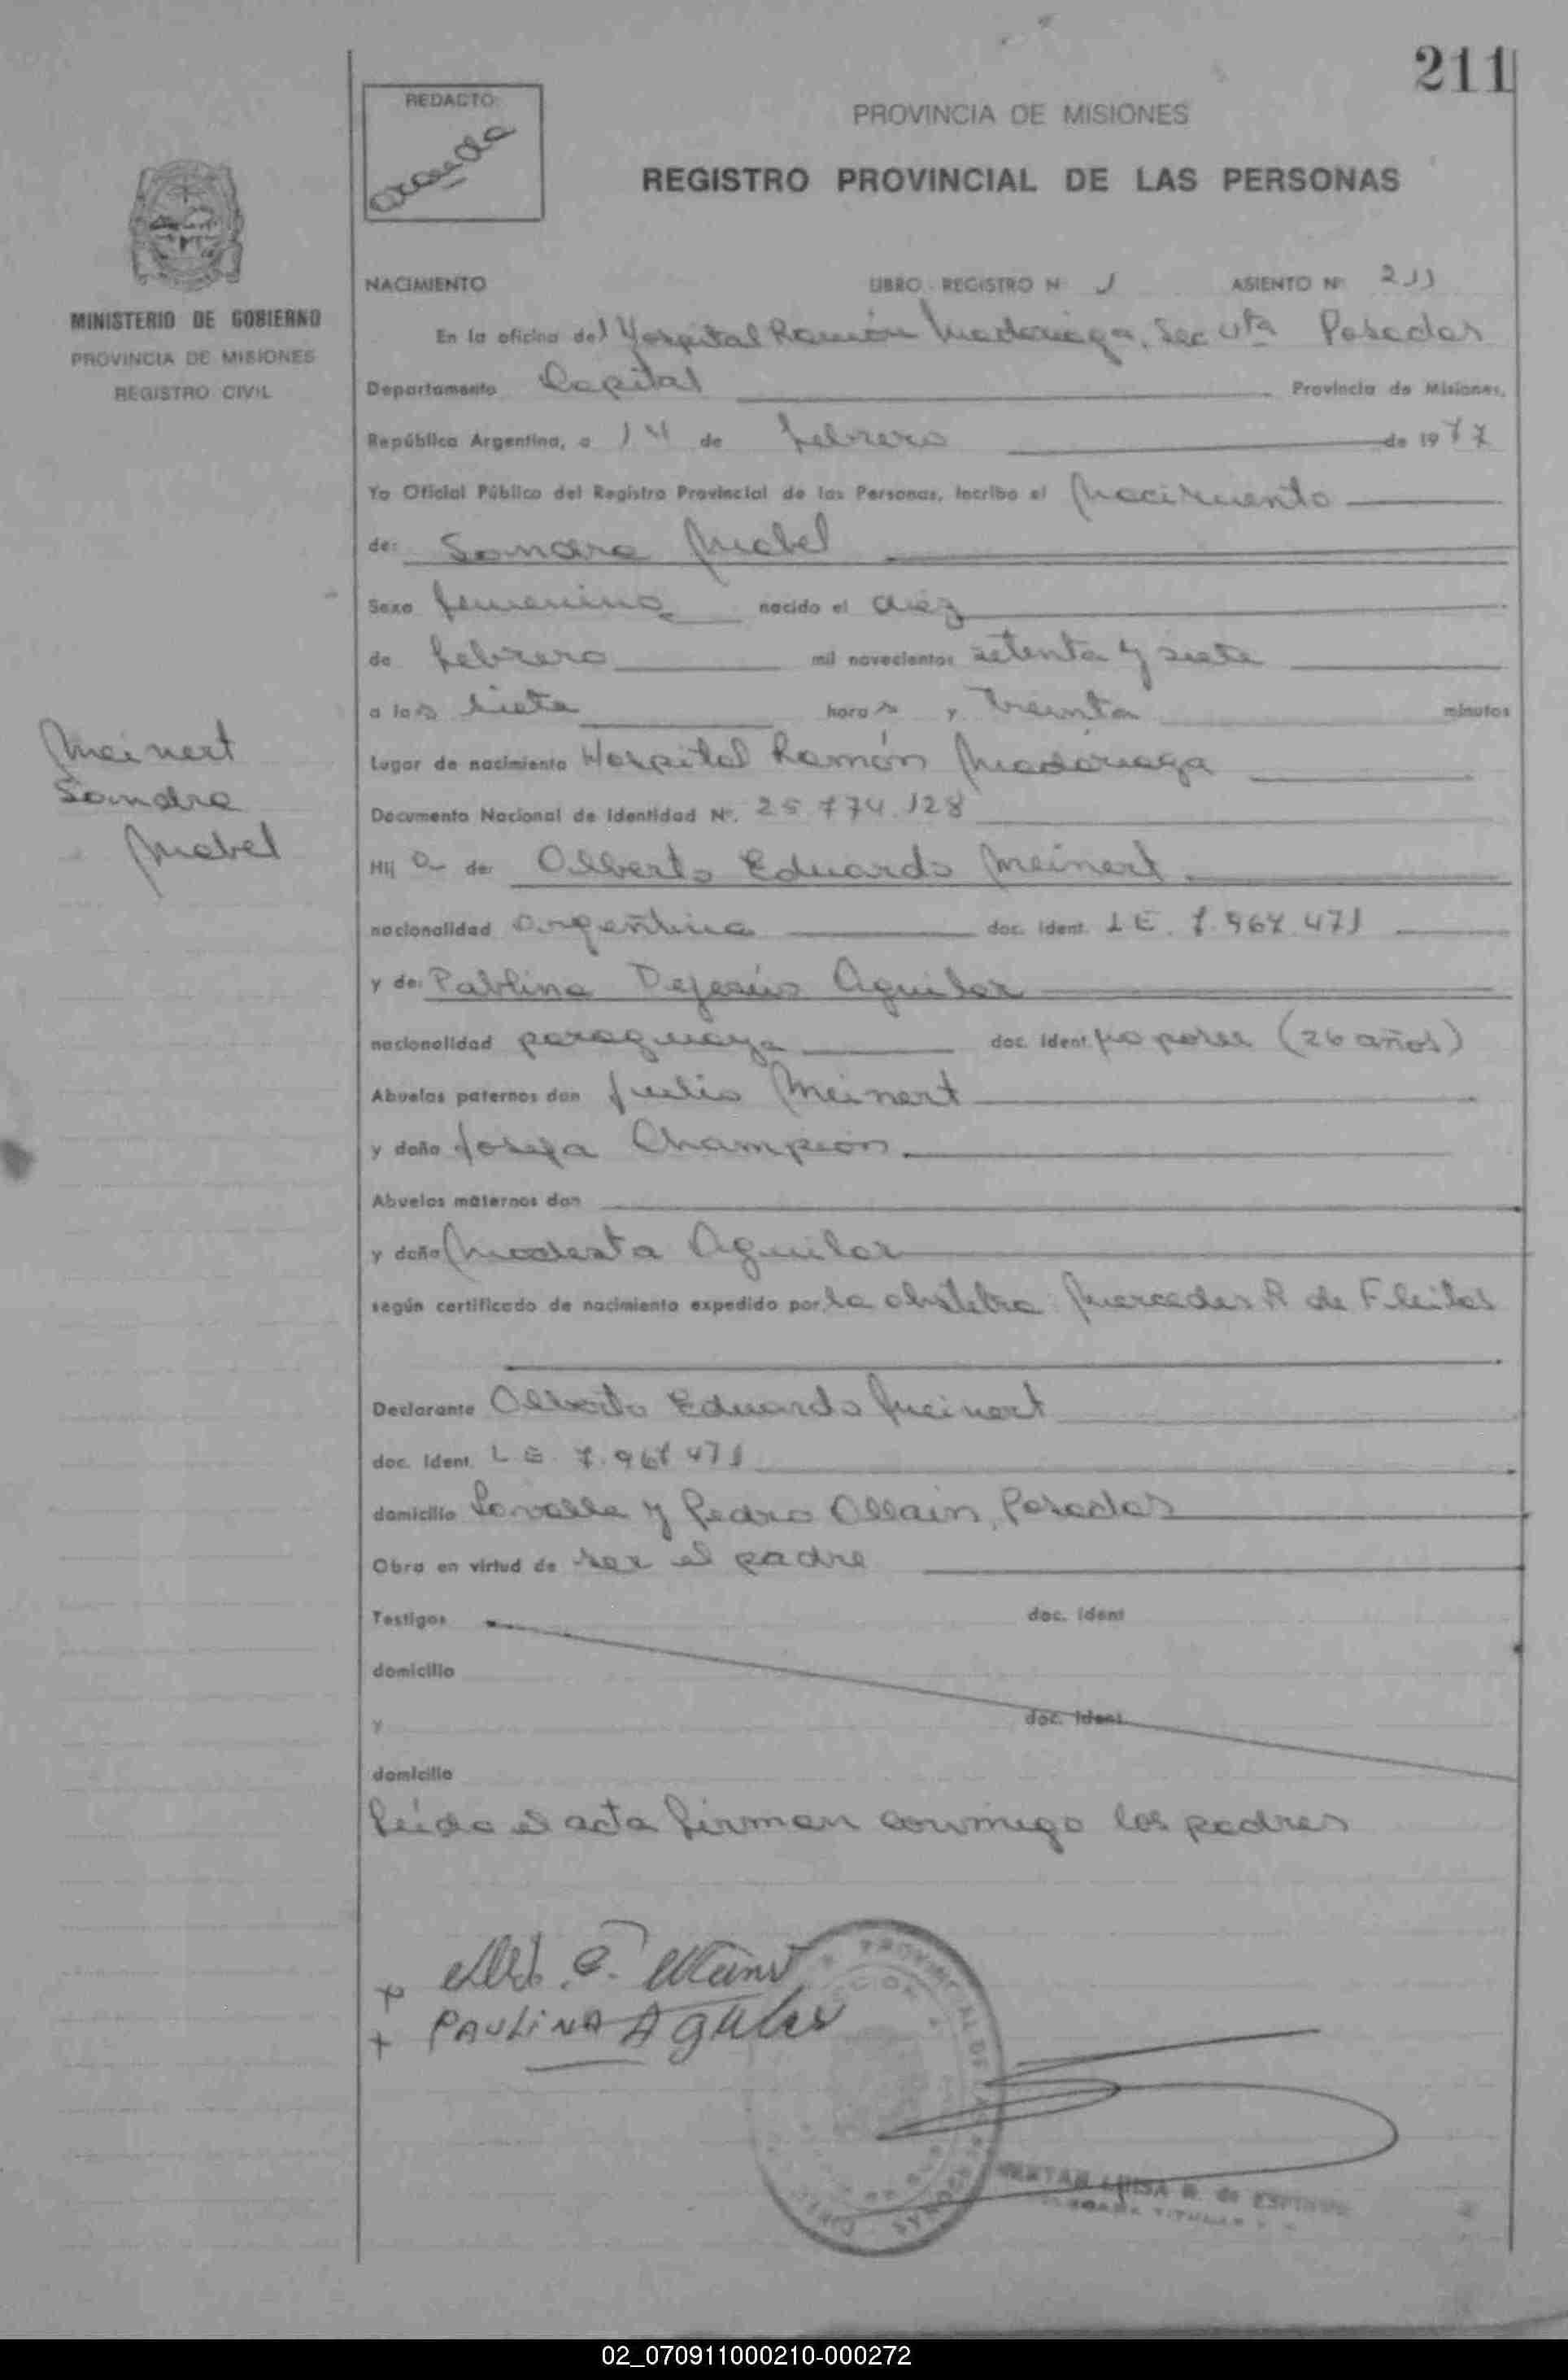 211
REDACTO
Aranda
PROVINCIA DE MISIONES
REGISTRO PROVINCIAL DE LAS PERSONAS
MINISTERIO DE GOBIERNO
PROVINCIA DE MISIONES
REGISTRO CIVIL
NACIMIENTO LIBRO REGISTRO Nº 1 ASIENTO Nº 211
En la oficina del Hospital Ramón Madariaga, Sec 4ta Posadas
Departamento Capital Provincia de Misiones,
República Argentina, a 14 de febrero de 1977
Yo Oficial Público del Registro Provincial de las Personas, inscribo el Nacimiento
de: Sandra Mabel
Sexo femenino nacido el diez
de febrero mil novecientos setenta y siete
a las siete horas y treinta minutos
Lugar de nacimiento Hospital Ramón Madariaga
Documento Nacional de Identidad Nº. 25.774.128
Meinert
Sandra
Mabel
Hij a de: Alberto Eduardo Meinert
nacionalidad argentina doc. ident. LE. 7.967.471
y de: Pablina Dejesús Aguilar
nacionalidad paraguaya doc. ident. no posee (26 años)
Abuelos paternos don Julio Meinert
y doña Josefa Champion
Abuelos maternos don
y doña Modesta Aguilar
según certificado de nacimiento expedido por la obstetra Mercedes R de Fleitas
Declarante Alberto Eduardo Meinert
doc. ident. L E. 7.967.471
domicilio Lavalle y Pedro Allain, Posadas
Obra en virtud de ser el padre
Testigos doc. ident
domicilio
y doc. ident
domicilio
Leída el acta firman conmigo los padres
PAULINA Aguilar
LUISA R. de
02_070911000210-000272